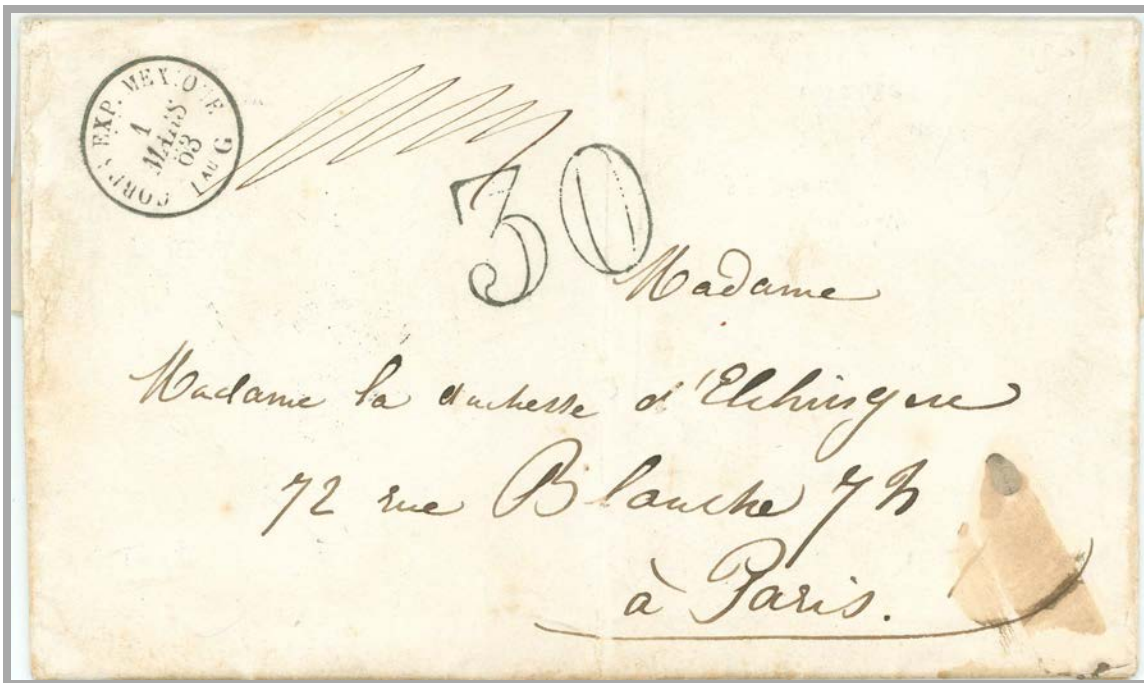 CORPS EXP. MEXIQUE
1
MARS
63
1 AU G
30
Madame
Madame la duchesse d'Elchingen
72 rue Blanche 72
à Paris.